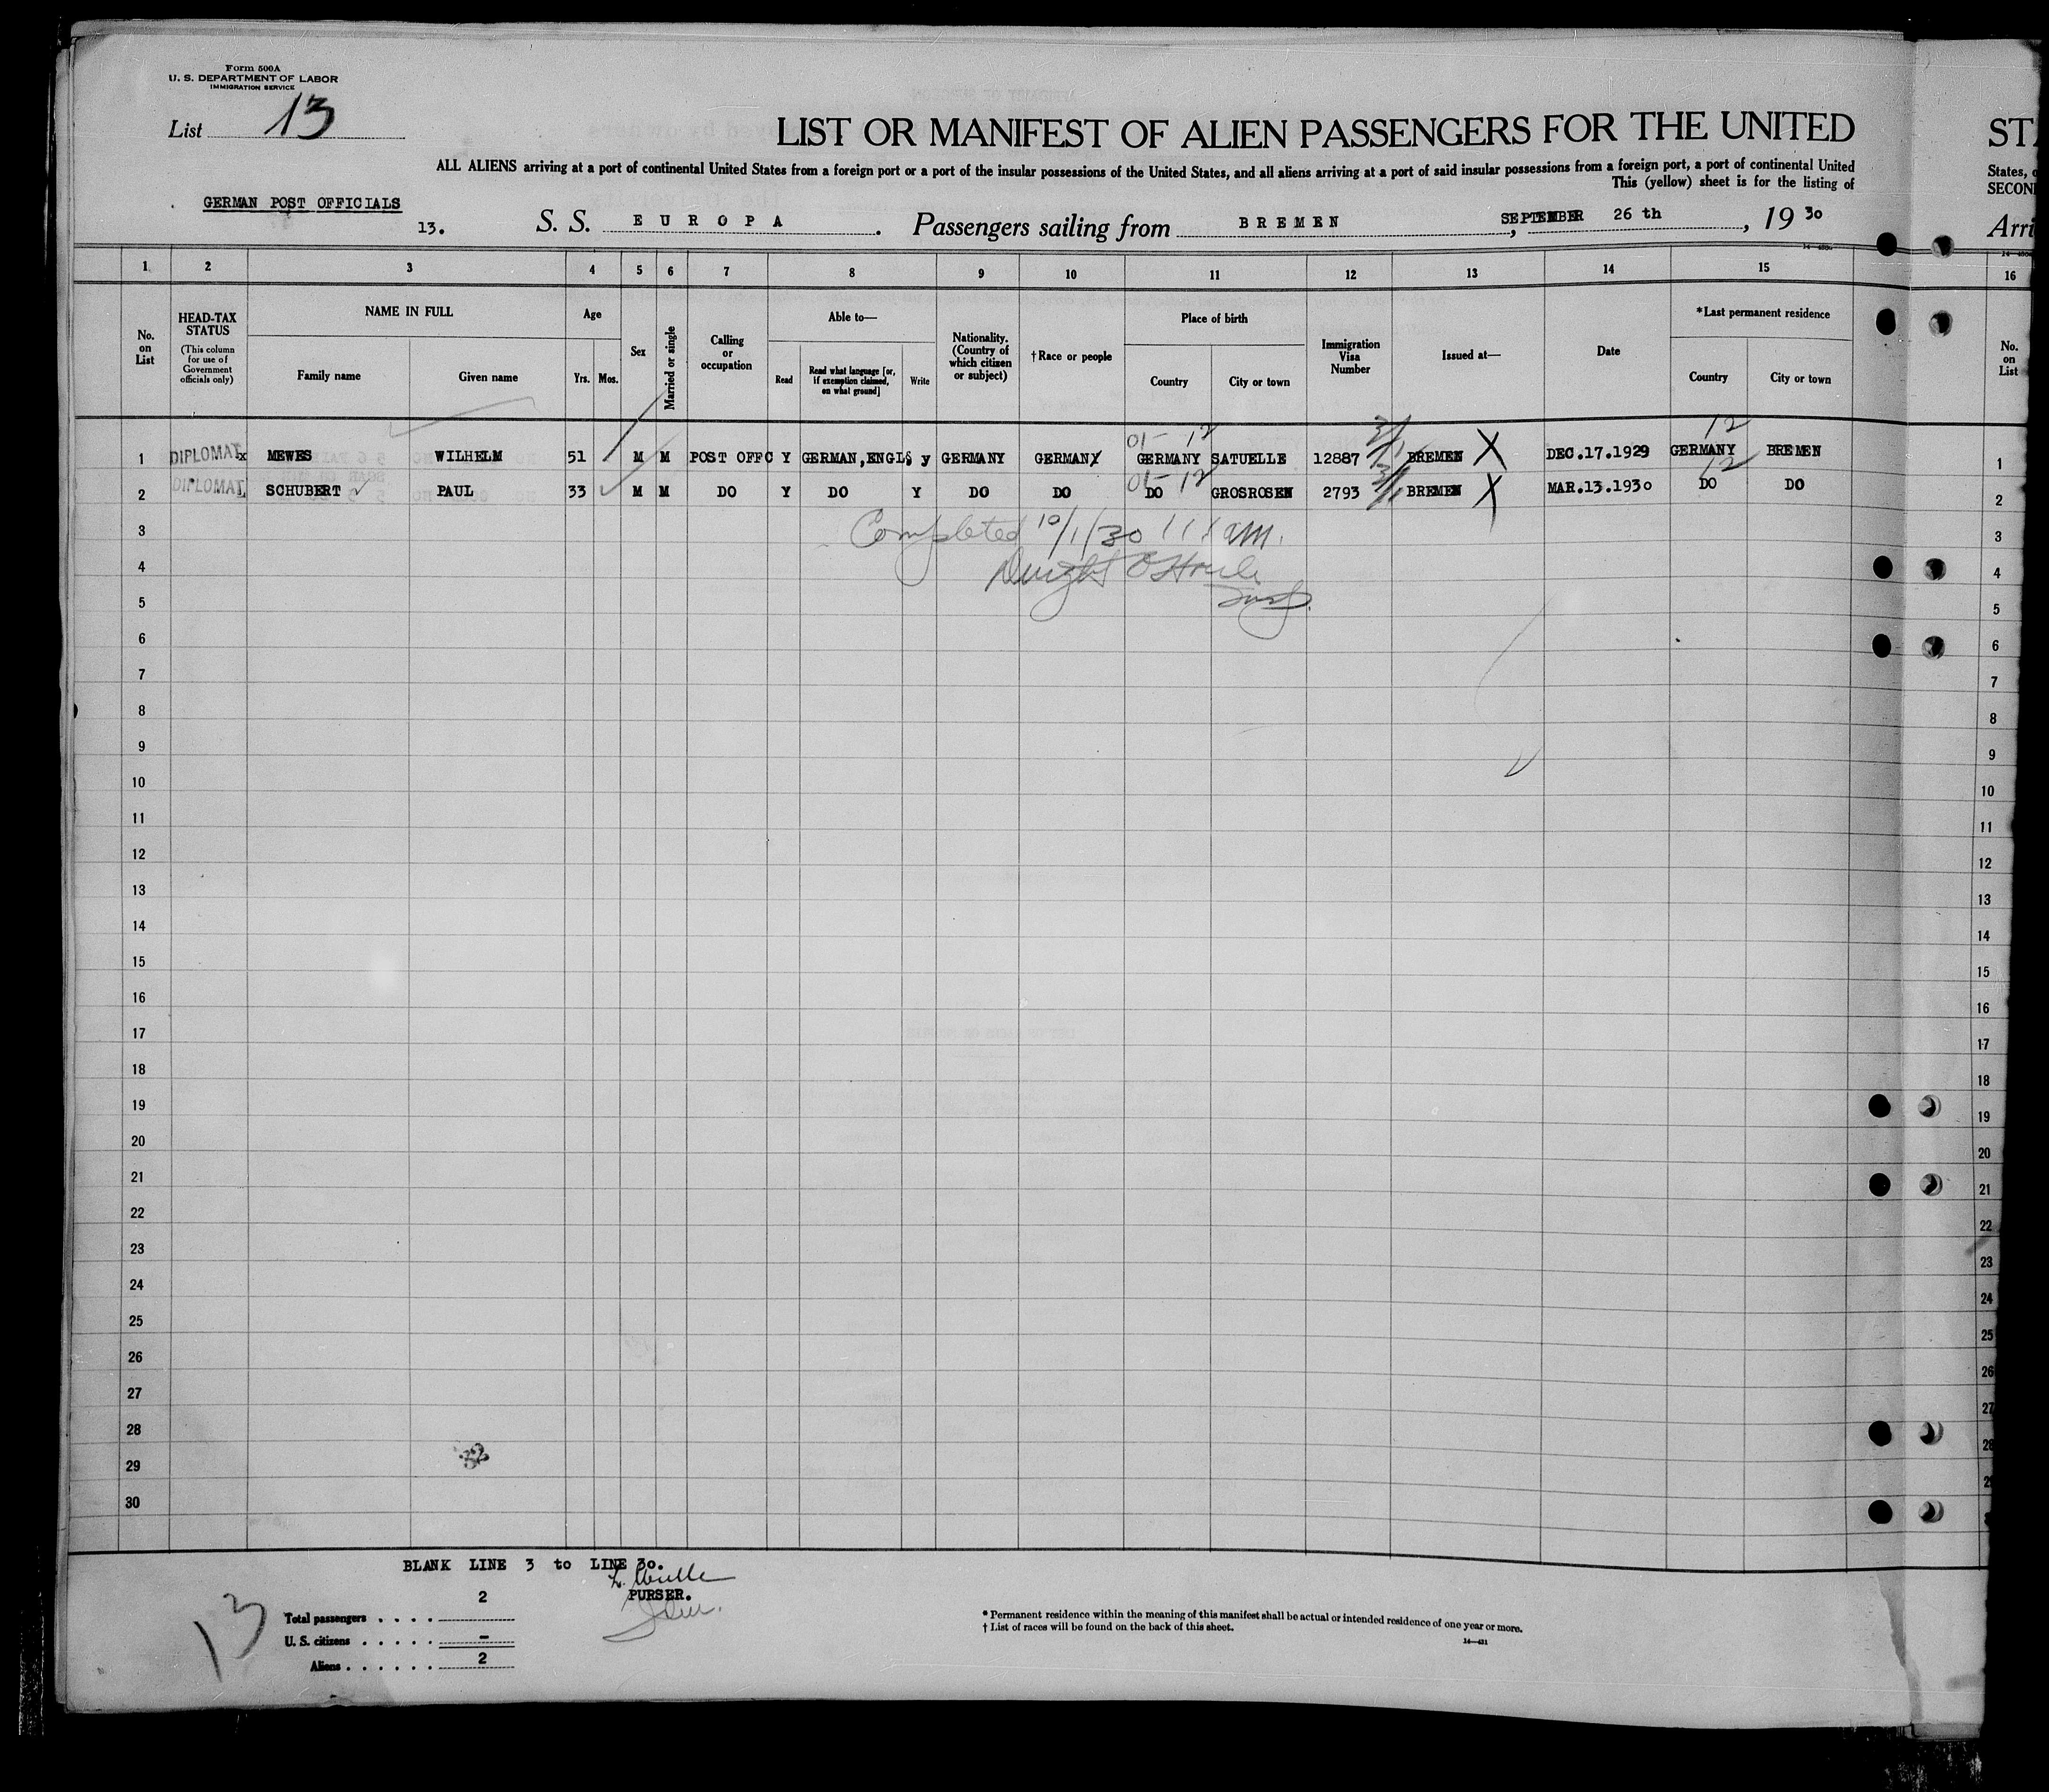 Form 500A
U. S. DEPARTMENT OF LABOR
IMMIGRATION SERVICE
List 13
LIST OR MANIFEST OF ALIEN PASSENGERS FOR THE UNITED
ST
ALL ALIENS arriving at a port of continental United States from a foreign port or a port of the insular possessions of the United States, and all aliens arriving at a port of said insular possessions from a foreign port, a port of continental United
States,
This (yellow) sheet is for the listing of
SECON
GERMAN POST OFFICIALS
13. S. S. EUROPA. Passengers sailing from BREMEN, SEPTEMBER 26 th, 19 30
Arri
1 2 3 4 5 6 7 8 9 10 11 12 13 14 15 16
No. on List
HEAD-TAX STATUS
(This column for use of Government officials only)
NAME IN FULL
Family name
Given name
Age
Yrs. Mos.
Sex
Married or single
Calling or occupation
Able to—
Read
Read what language [or, if exemption claimed, on what ground]
Write
Nationality. (Country of which citizen or subject)
† Race or people
Place of birth
Country
City or town
Immigration Visa Number
Issued at—
Date
*Last permanent residence
Country
City or town
No. on List
01- 12 12
1 DIPLOMAT x MEWES WILHELM 51 M M POST OFFC Y GERMAN,ENGLS y GERMANY GERMAN GERMANY SATUELLE 12887 BREMEN X DEC.17.1929 GERMANY BREMEN 1
01- 12 12
2 DIPLOMAT SCHUBERT PAUL 33 M M DO Y DO Y DO DO DO GROSROSEN 2793 BREMEN X MAR.13.1930 DO DO 2
3 Completed 10/1/30 11 am. 3
4 Dwight 4
5 Insp. 5
6 6
7 7
8 8
9 9
10 10
11 11
12 12
13 13
14 14
15 15
16 16
17 17
18 18
19 19
20 20
21 21
22 22
23 23
24 24
25 25
26 26
27 27
28 28
29
30
BLANK LINE 3 to LINE 30.
PURSER.
13
Total passengers . . . . 2
U. S. citizens . . . . . -
Aliens . . . . . . 2
* Permanent residence within the meaning of this manifest shall be actual or intended residence of one year or more.
† List of races will be found on the back of this sheet.
14—431